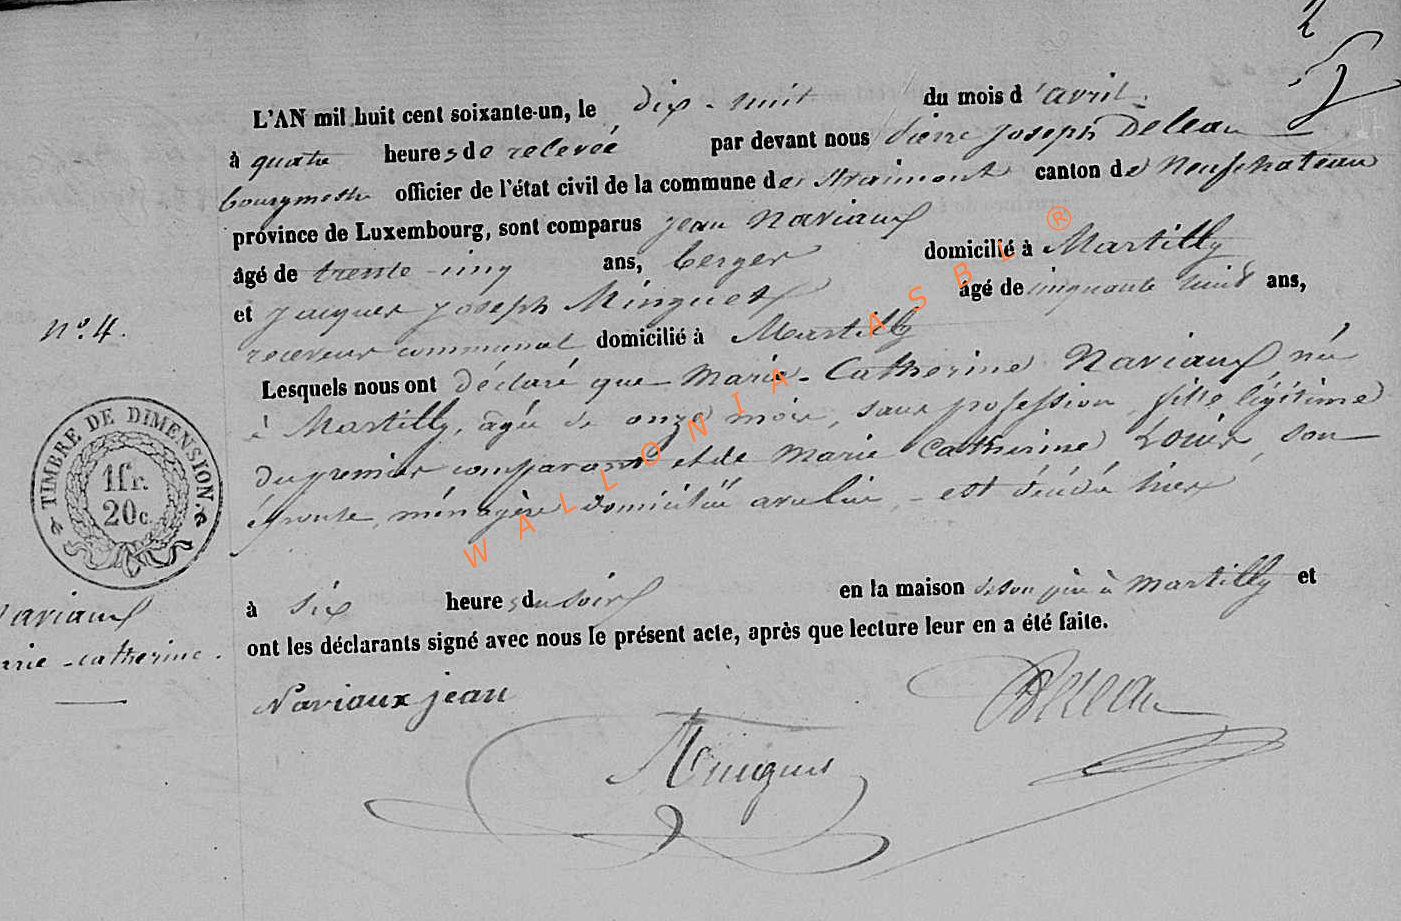 2
L'AN mil huit cent soixante-un, le dix-huit du mois d'avril.
à quatre heures de relevée par devant nous Pierre Joseph Deleau
bourgmestre officier de l'état civil de la commune de Straimont canton de Neufchateau
province de Luxembourg, sont comparus Jean Naviaux
âgé de trente-cinq ans, berger domicilié à Martilly
et Jacques Joseph Minguet âgé de cinquante huit ans,
receveur communal domicilié à Martilly
Lesquels nous ont déclaré que Marie-Catherine Naviaux, née
à Martilly, agée de onze mois, sans profession fille légitime
du premier comparant et de Marie Catherine Louis, son
épouse, ménagère domiciliée avec lui, - est décédée hier
à six heures du soir en la maison de son père à Martilly et
ont les déclarants signé avec nous le présent acte, après que lecture leur en a été faite.
Naviaux jean
Deleau
Minguet
n° 4.
TIMBRE DE DIMENSION.
1fr.
20c.
Naviaux
arie-catherine.
WALLONIA ASBL ®